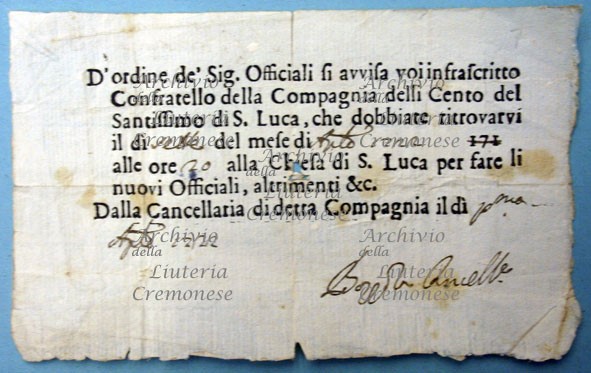 D'ordine de' Sig. Officiali si avvisa voi infrascritto
Confratello della Compagnia delli Cento del
Santissimo di S. Luca, che dobbiate ritrovarvi
il dì del mese di 171
alle ore 20 alla Chiesa di S. Luca per fare li
nuovi Officiali, altrimenti &c.
Dalla Cancellaria di detta Compagnia il dì
Archivio
della
Liuteria
Cremonese
Archivio
della
Liuteria
Cremonese
Archivio
della
Liuteria
Cremonese
Archivio
della
Liuteria
Cremonese
Archivio
della
Liuteria
Cremonese